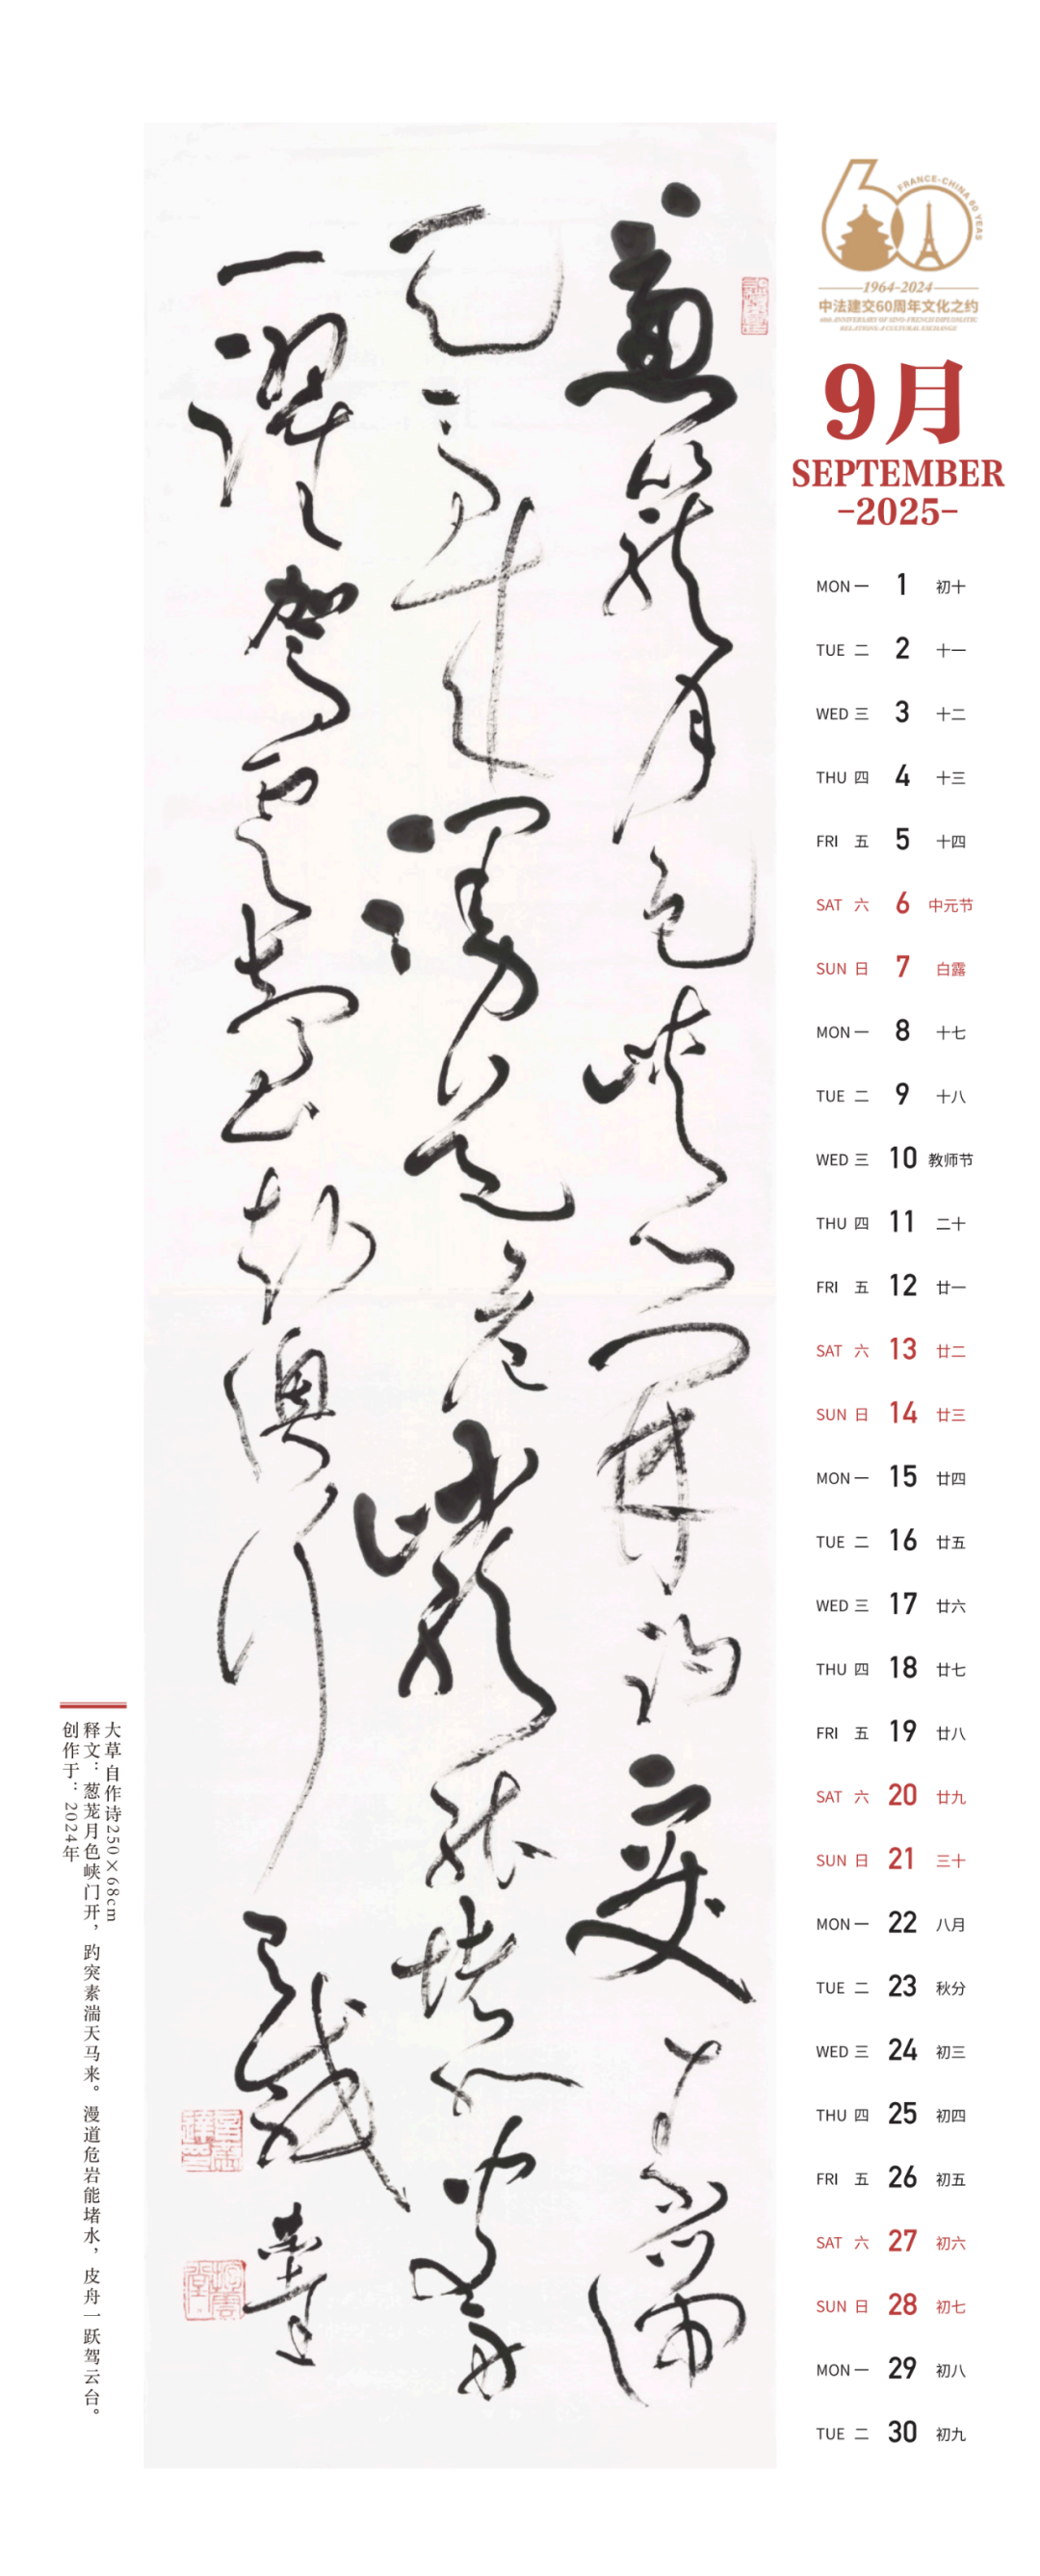 蔥蘢月色峽门開趵突素湍
天马来漫道危岩能堵水皮舟
一躍驾云臺
60
FRANCE-CHINA 60 YEAS
1964-2024
中法建交60周年文化之约
60th ANNIVERSARY OF SINO-FRENCH DIPLOMATIC
RELATIONS: A CULTURAL EXCHANGE
9月
SEPTEMBER
-2025-
MON 一 1 初十
TUE 二 2 十一
WED 三 3 十二
THU 四 4 十三
FRI 五 5 十四
SAT 六 6 中元节
SUN 日 7 白露
MON 一 8 十七
TUE 二 9 十八
WED 三 10 教师节
THU 四 11 二十
FRI 五 12 廿一
SAT 六 13 廿二
SUN 日 14 廿三
MON 一 15 廿四
TUE 二 16 廿五
WED 三 17 廿六
THU 四 18 廿七
FRI 五 19 廿八
SAT 六 20 廿九
SUN 日 21 三十
MON 一 22 八月
TUE 二 23 秋分
WED 三 24 初三
THU 四 25 初四
FRI 五 26 初五
SAT 六 27 初六
SUN 日 28 初七
MON 一 29 初八
TUE 二 30 初九
大草 自作诗250×68cm
释文：葱茏月色峡门开，趵突素湍天马来。漫道危岩能堵水，皮舟一跃驾云台。
创作于：2024年